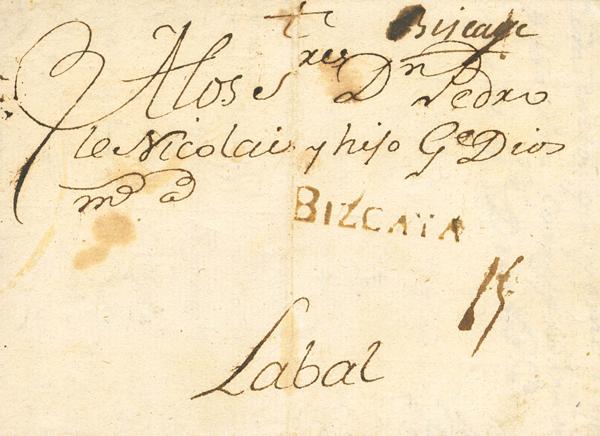 Biscaye
A los s.res Dn Pedro
le Nicolai y hijo Ge Dios
ms as
BIZCAYA
15
Labal